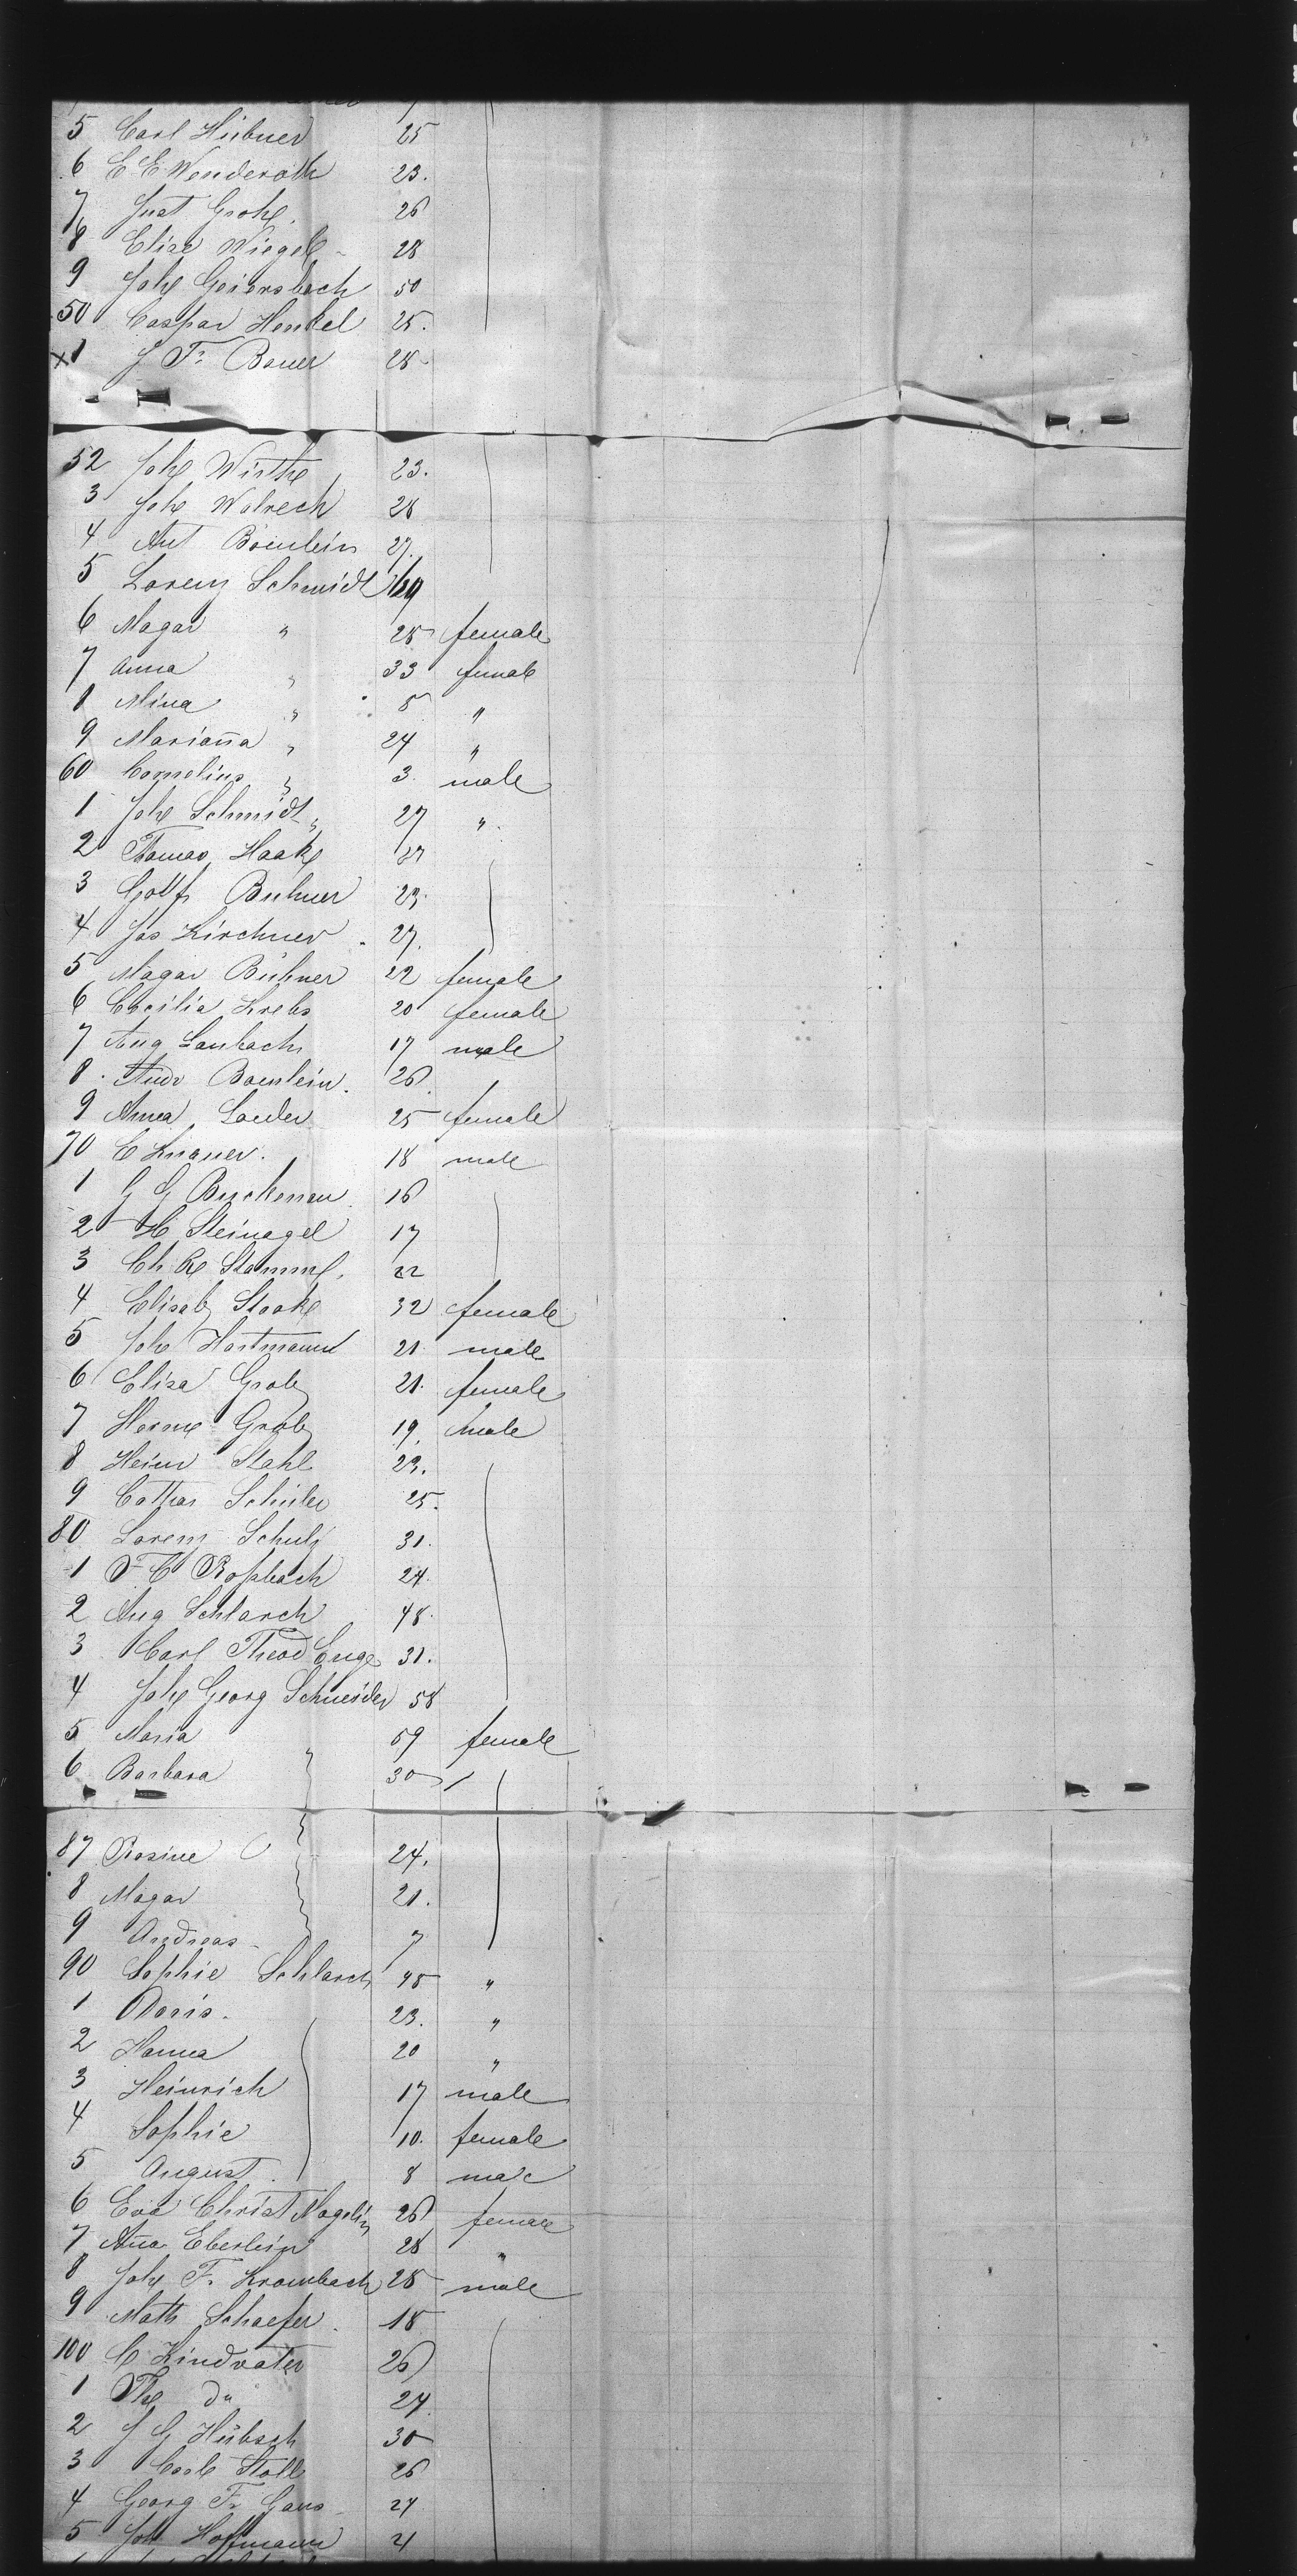 5 Carl Hübner 25
6 C E Wenderoth 23.
7 Just Grohe 26
8 Elise Wiegel 28
9 Joh Geiersbach 50
50 Caspar Henkel 25.
x1 J Fr Bauer 28
52 Joh Wirth 23.
3 Joh Walrech 28
4 Ant Bäunlein 27.
5 Lorenz Schmidt 69
6 Magar " 28 female
7 Anna " 33 female
8 Mina " 5 "
9 Mariana " 24 "
60 Cornelius " 3 male
1 Joh Schmidt " 27 "
2 Thomas Haake 37
3 Gottf Buhner 23.
4 Jos Kirchner 27.
5 Magar Bühner 22 female
6 Cecilia Krebs 20 female
7 Aug Laubach 17 male
8 Andr Baunlein 26
9 Anna Lauder 25 female
70 C Knauer. 18 male
1 G G Buckenau 16
2 H Steinagel 17
3 Ch Stamme. 22
4 Elisab Staake 32 female
5 Joh Hartmann 21 male
6 Elisa Grob 21. female
7 Herm Grob 19. male
8 Heinr Stahl 23.
9 Cathar Schüler 25.
80 Lorenz Schulz 31.
1 F C Roßbach 24.
2 Aug Schlarch 48.
3 Carl Theod Enge 31.
4 Joh Georg Schneider 58
5 Maria " 59 female
6 Barbara 30
87 Rosine 24.
8 Magar 21.
9 Andreas 7
90 Sophie Schlarch 45 "
1 Doris 23. "
2 Hanna 20 "
3 Heinrich 17 male
4 Sophie 10. female
5 August 8 male
6 Eva Christ Magelin 26 female
7 Ana Eberlein 28 "
8 Joh F. Krombach 28 male
9 Math Schaefer 18
100 C Kindvater 26
1 Th do 24
2 J G Hübsch 30
3 Carl Stoll 26
4 Georg Fr Gans 24
5 Joh Hoffmann 21